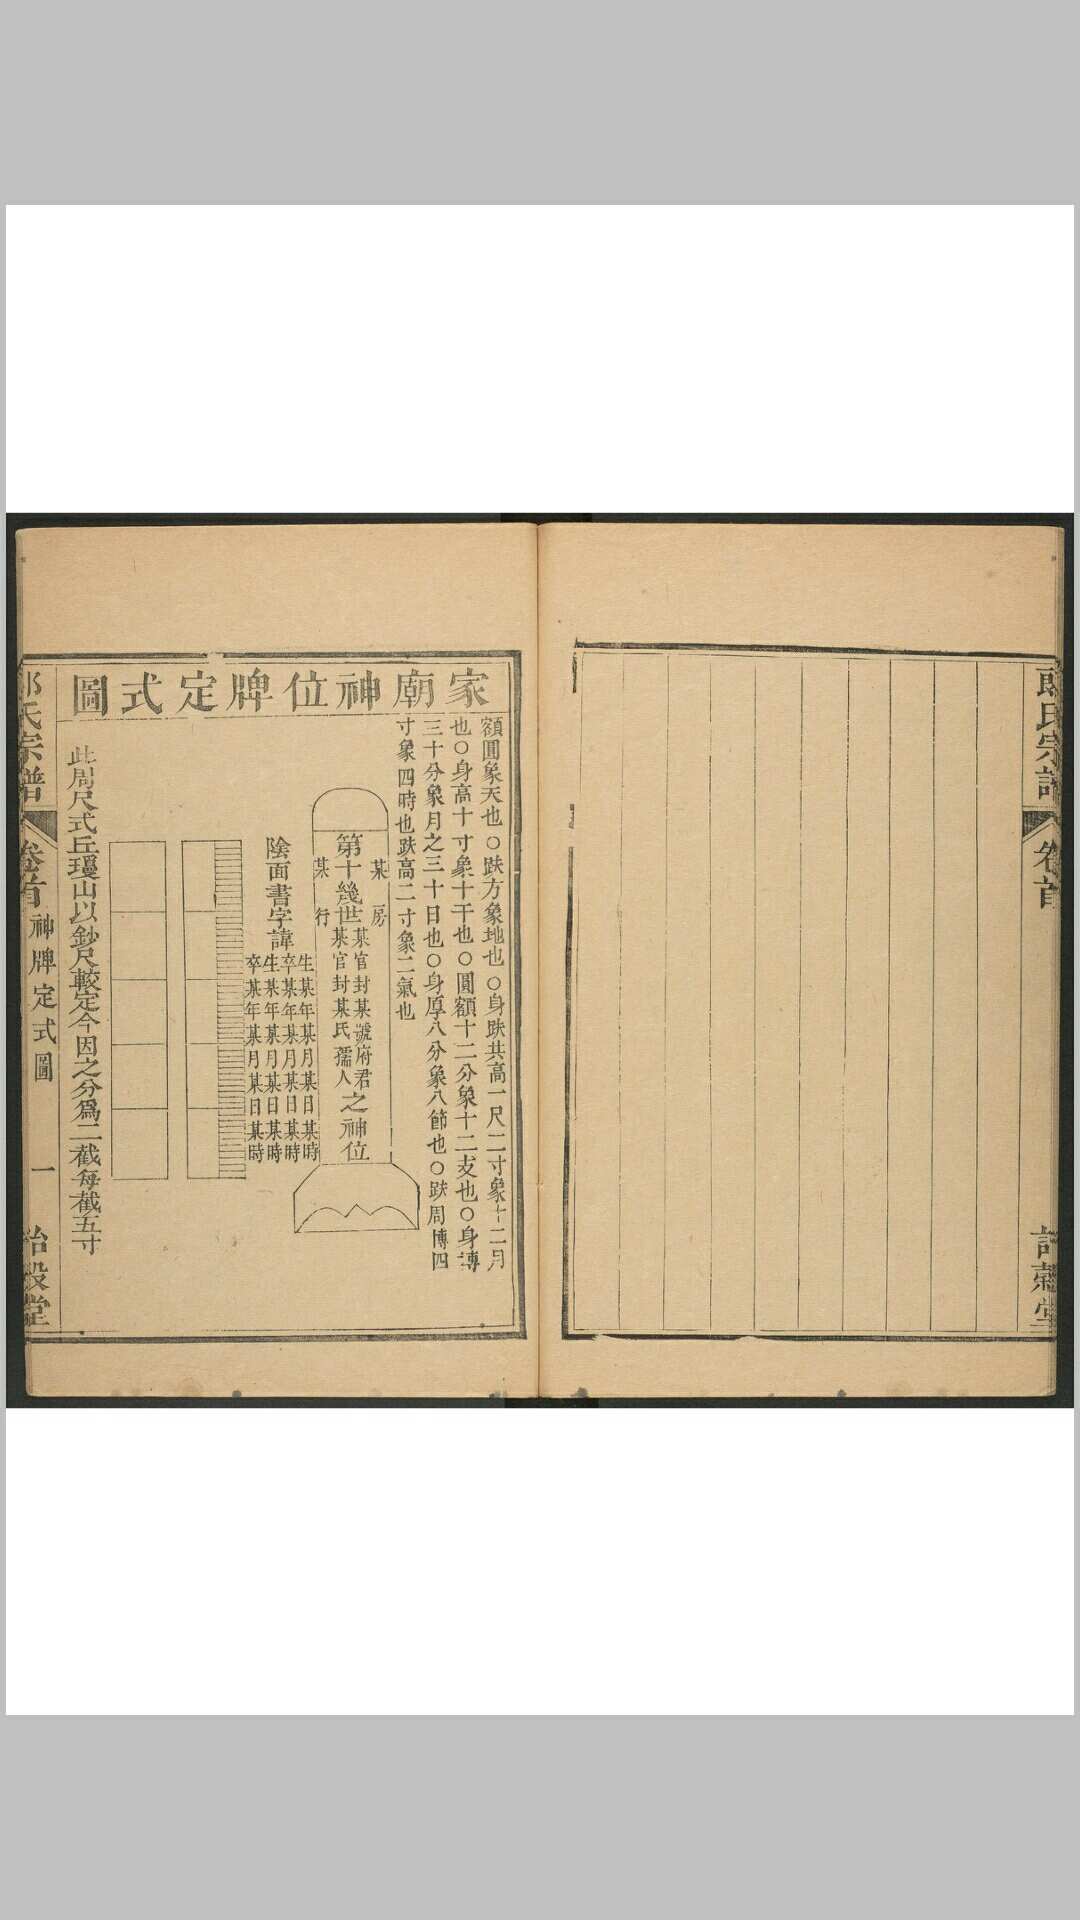 郎氏宗譜
卷首
詒穀堂
家廟神位牌定式圖
額圓象天也○趺方象地也○身趺共高一尺二寸象十二月
也○身高十寸象十干也○圓額十二分象十二支也○身博
三十分象月之三十日也○身厚八分象八節也○趺周博四
寸象四時也趺高二寸象二氣也
某房
第十幾世某官封某號府君之神位
某官封某氏孺人
某行
陰面書字諱
生某年某月某日某時
卒某年某月某日某時
生某年某月某日某時
卒某年某月某日某時
此周尺式丘瓊山以鈔尺較定今因之分爲二截每截五寸
郎氏宗譜
卷首
神牌定式圖
一
詒穀堂